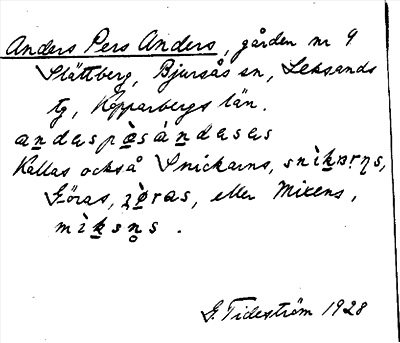 Anders Pers Anders, gården nr 9
Slättberg, Bjursås sn, Leksands
tg, Kopparbergs län.
andaspæ̀sándasas
Kallas också Snickarns, snìkɒrn̥s,
Göras, jø̀ras, eller Mixens,
mìksn̥s.
G. Tideström 1928